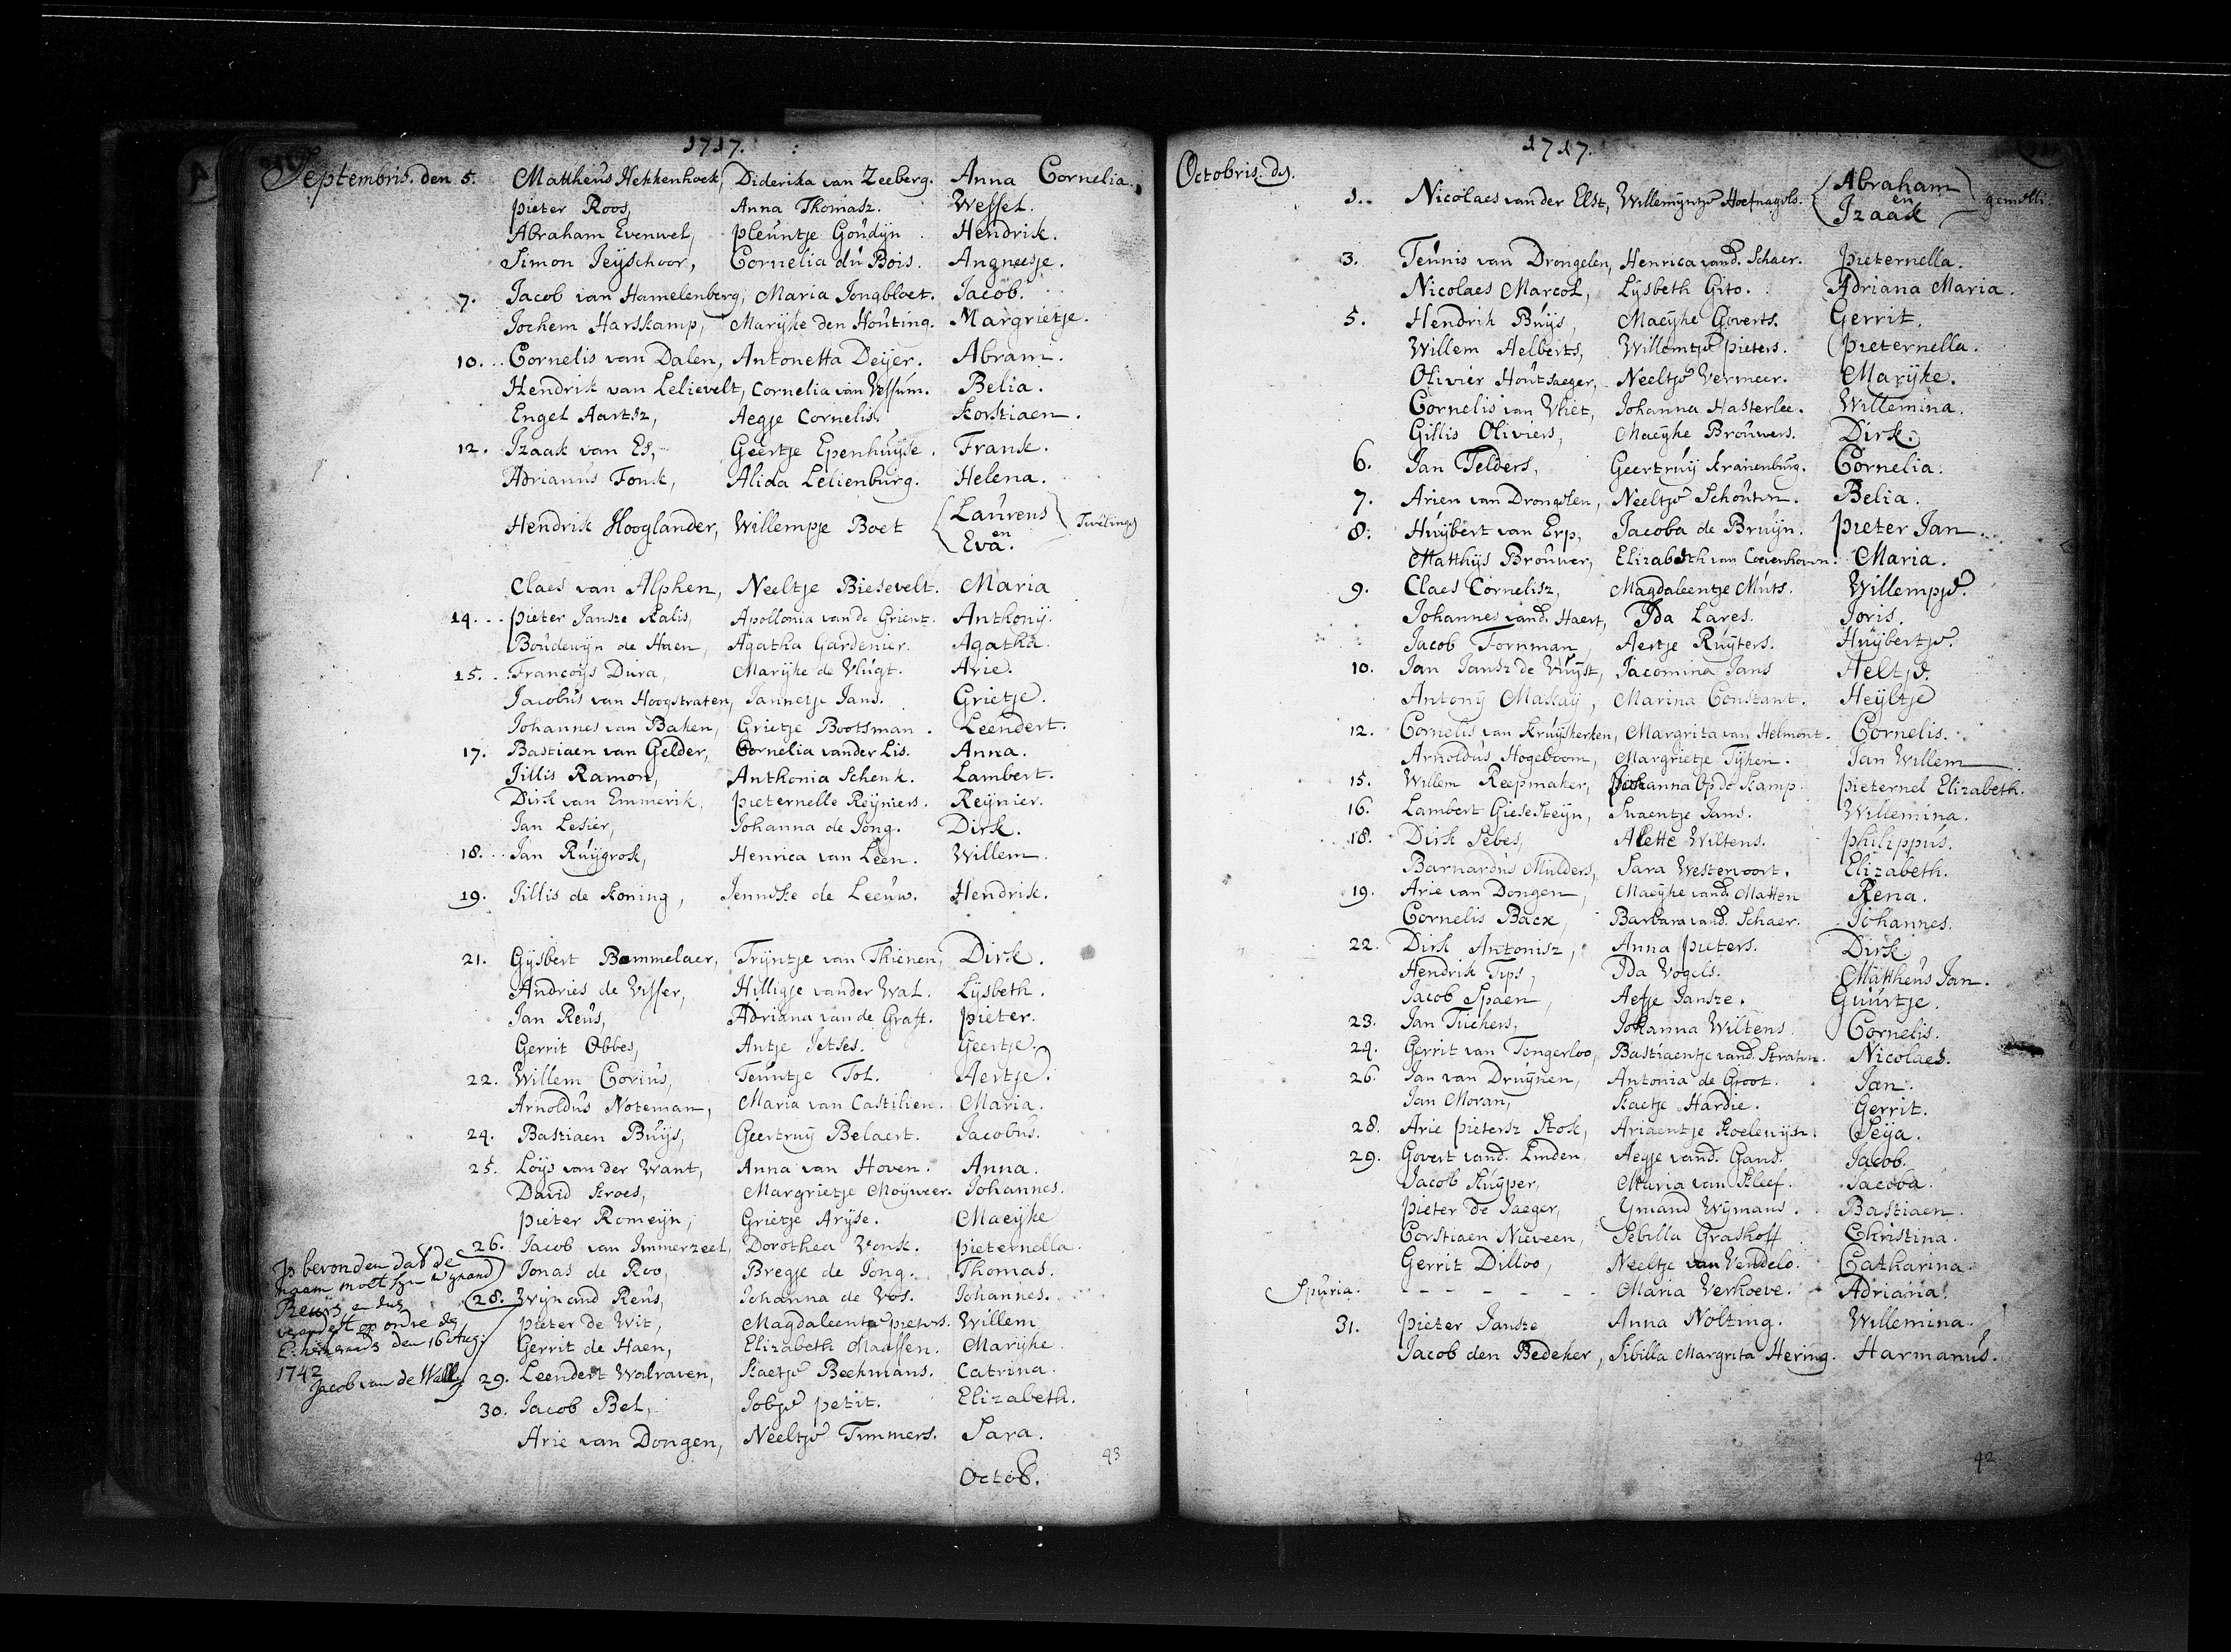 1717.
Septembris. den 5. Mattheus Hekkenhoek, Diderika van Zeeberg. Anna Cornelia.
pieter Roos, Anna Thomasz. Wessel.
Abraham Evenwel, pleuntje Goudijn. Hendrik.
Simon Jeyschoor, Cornelia du Bois. Angneesje.
7. Jacob van Hamelenberg, Maria Jongbloet. Jacob.
Jochem Harskamp, Marijke den Houting. Margrietje.
10. Cornelis van Dalen, Antonetta Deijer. Abram.
Hendrik van Lelievelt, Cornelia van Vessum. Belia.
Engel Aartsz, Aegje Cornelis. Korstiaen.
12. Izaak van Es, Geertje Epenhuijse. Frank.
Adrianus Fonk, Alida Lelienburg. Helena.
Hendrik Hooglander, Willempje Boet Laurens en Eva. Twelinge
Claes van Alphen, Neeltje Biesevelt. Maria
14. pieter Jansze Kalis, Apollonia van de Grient. Anthonij.
Boudewijn de Haen, Agatha Gardenier. Agatha.
15. Francoijs Dura, Marijke de Vlugt. Arie.
Jacobus van Hoogstraten, Jannetje Jans. Grietje.
Johannes van Baken, Grietje Bootsman. Leendert.
17. Bastiaen van Gelder, Cornelia vander Lis. Anna.
Jillis Ramon, Anthonia Schenk. Lambert.
Dirk van Emmerik, pieternelle Reijniers. Reijnier.
Jan Lesier, Johanna de Jong. Dirk.
18. Jan Ruijgrok, Henrica van Leen. Willem.
19. Jillis de Koning, Jenneke de Leeuw. Hendrik.
21. Gijsbert Bommelaer, Trijntje van Thienen, Dirk.
Andries de Visser, Hilligje vander Wal. Lijsbeth.
Jan Reus, Adriana van de Graft. pieter.
Gerrit Obbes, Antje Jetses. Geertje.
22. Willem Corius, Teuntje Tol. Aertje.
Arnoldus Noteman, Maria van Castilien. Maria.
24. Bastiaen Buijs, Geertruij Belaert. Jacobus.
25. Loijs van der Want, Anna van Hoven. Anna.
David Kroes, Margrietje Moijweer. Johannes.
pieter Romeijn, Grietje Arijse. Maeijke
26. Jacob van Immerzeel, Dorothea Vonk. pieternella.
Jonas de Roo, Bregje de Jong. Thomas.
28. Wijnand Reus, Johanna de Vos. Johannes.
pieter de Wit, Magdaleentje pieters. Willem
Gerrit de Haen, Elizabeth Maassen. Marijke.
29. Leendert Walraven, Kaetje Beekmans. Catrina.
30. Jacob Bel, Jobje petit. Elizabeth.
Arie van Dongen, Neeltje Timmers. Sara.
Octob.
43
Is bevonden dat de
naam moet sijn wijnand
Reus, en dus
verandert op ordre de
den 16 Aug:
1742
Jacob van de Wall
1717.
Octobris. de.
1. Nicolaes van der Elst, Willemijntje Hoefnagels. Abraham en Izaak gemelli.
3. Teunis van Drongelen, Henrica vand. Schaer. pieternella.
Nicolaes Marcol, Lijsbeth Gito. Adriana Maria.
5. Hendrik Buijs, Maeijke Goverts. Gerrit.
Willem Aelberts, Willemtje pieters. pieternella.
Olivier Houtsaeger, Neeltje Vermeer. Marijke.
Cornelis van Vliet, Johanna Hasterlee. Willemina.
Gillis Oliviers, Maeijke Brouwers. Dirk.
6. Jan Telders, Geertruij Kranenburg. Cornelia.
7. Arien van Drongelen, Neeltje Schouten. Belia.
8. Huijbert van Erp, Jacoba de Bruijn. pieter Jan.
Matthijs Brouwer, Elizabeth van Coevenhoven. Maria.
9. Claes Cornelisz, Magdaleentje Muts. Willempje.
Johannes vand. Haert, Ida Lares. Joris.
Jacob Fornman, Aertje Ruijters. Huijbertje.
10. Jan Jansz de Vuijst, Jacomina Jans Aeltje.
Antonij Makaij, Marina Constant. Heijltje
12. Cornelis van Kruijskerken, Margrita van Helmont. Cornelis.
Arnoldus Hogeboom, Margrietje Tijken. Jan Willem
15. Willem Reepmaker, Johanna Op de Kamp. pieternel Elizabeth.
16. Lambert Gieseteijn, Swaentje Jans. Willemina.
18. Dirk Sebes, Alette Wiltens. philippus.
Barnardus Mulders, Sara Westervoort. Elizabeth.
19. Arie van Dongen, Maeijke vand. Matten Rena.
Cornelis Bacx, Barbara vand. Schaer. Johannes.
22. Dirk Antonisz, Anna pieters. Dirk
Hendrik Tips, Ida Vogels. Mattheus Jan.
Jacob Spaen, Aefje Jansze. Guurtje.
23. Jan Tuckers, Johanna Wiltens. Cornelis.
24. Gerrit van Tongerloo, Bastiaentje vand. Straten. Nicolaes.
26. Jan van Druijnen, Antonia de Groot. Jan.
Jan Moran, Kaetje Hardie. Gerrit.
28. Arie pietersz Stok, Ariaentje Koelewijn. Seija.
29. Govert vand. Linden, Aegje vand. Gand. Jacob.
Jacob Kuijper, Maria van Kleef. Jacoba.
pieter de Jaeger, Ijmand Wijmans. Bastiaen.
Corstiaen Nieveen, Sebilla Grashoff. Christina.
Gerrit Dilloo, Neeltje van Vendelo. Catharina.
Spuria. - - - - - - Maria Verhoeve. Adriana.
31. pieter Jansze Anna Nolting. Willemina.
Jacob den Bedeker, Sibilla Margrita Hering. Harmanus.
42